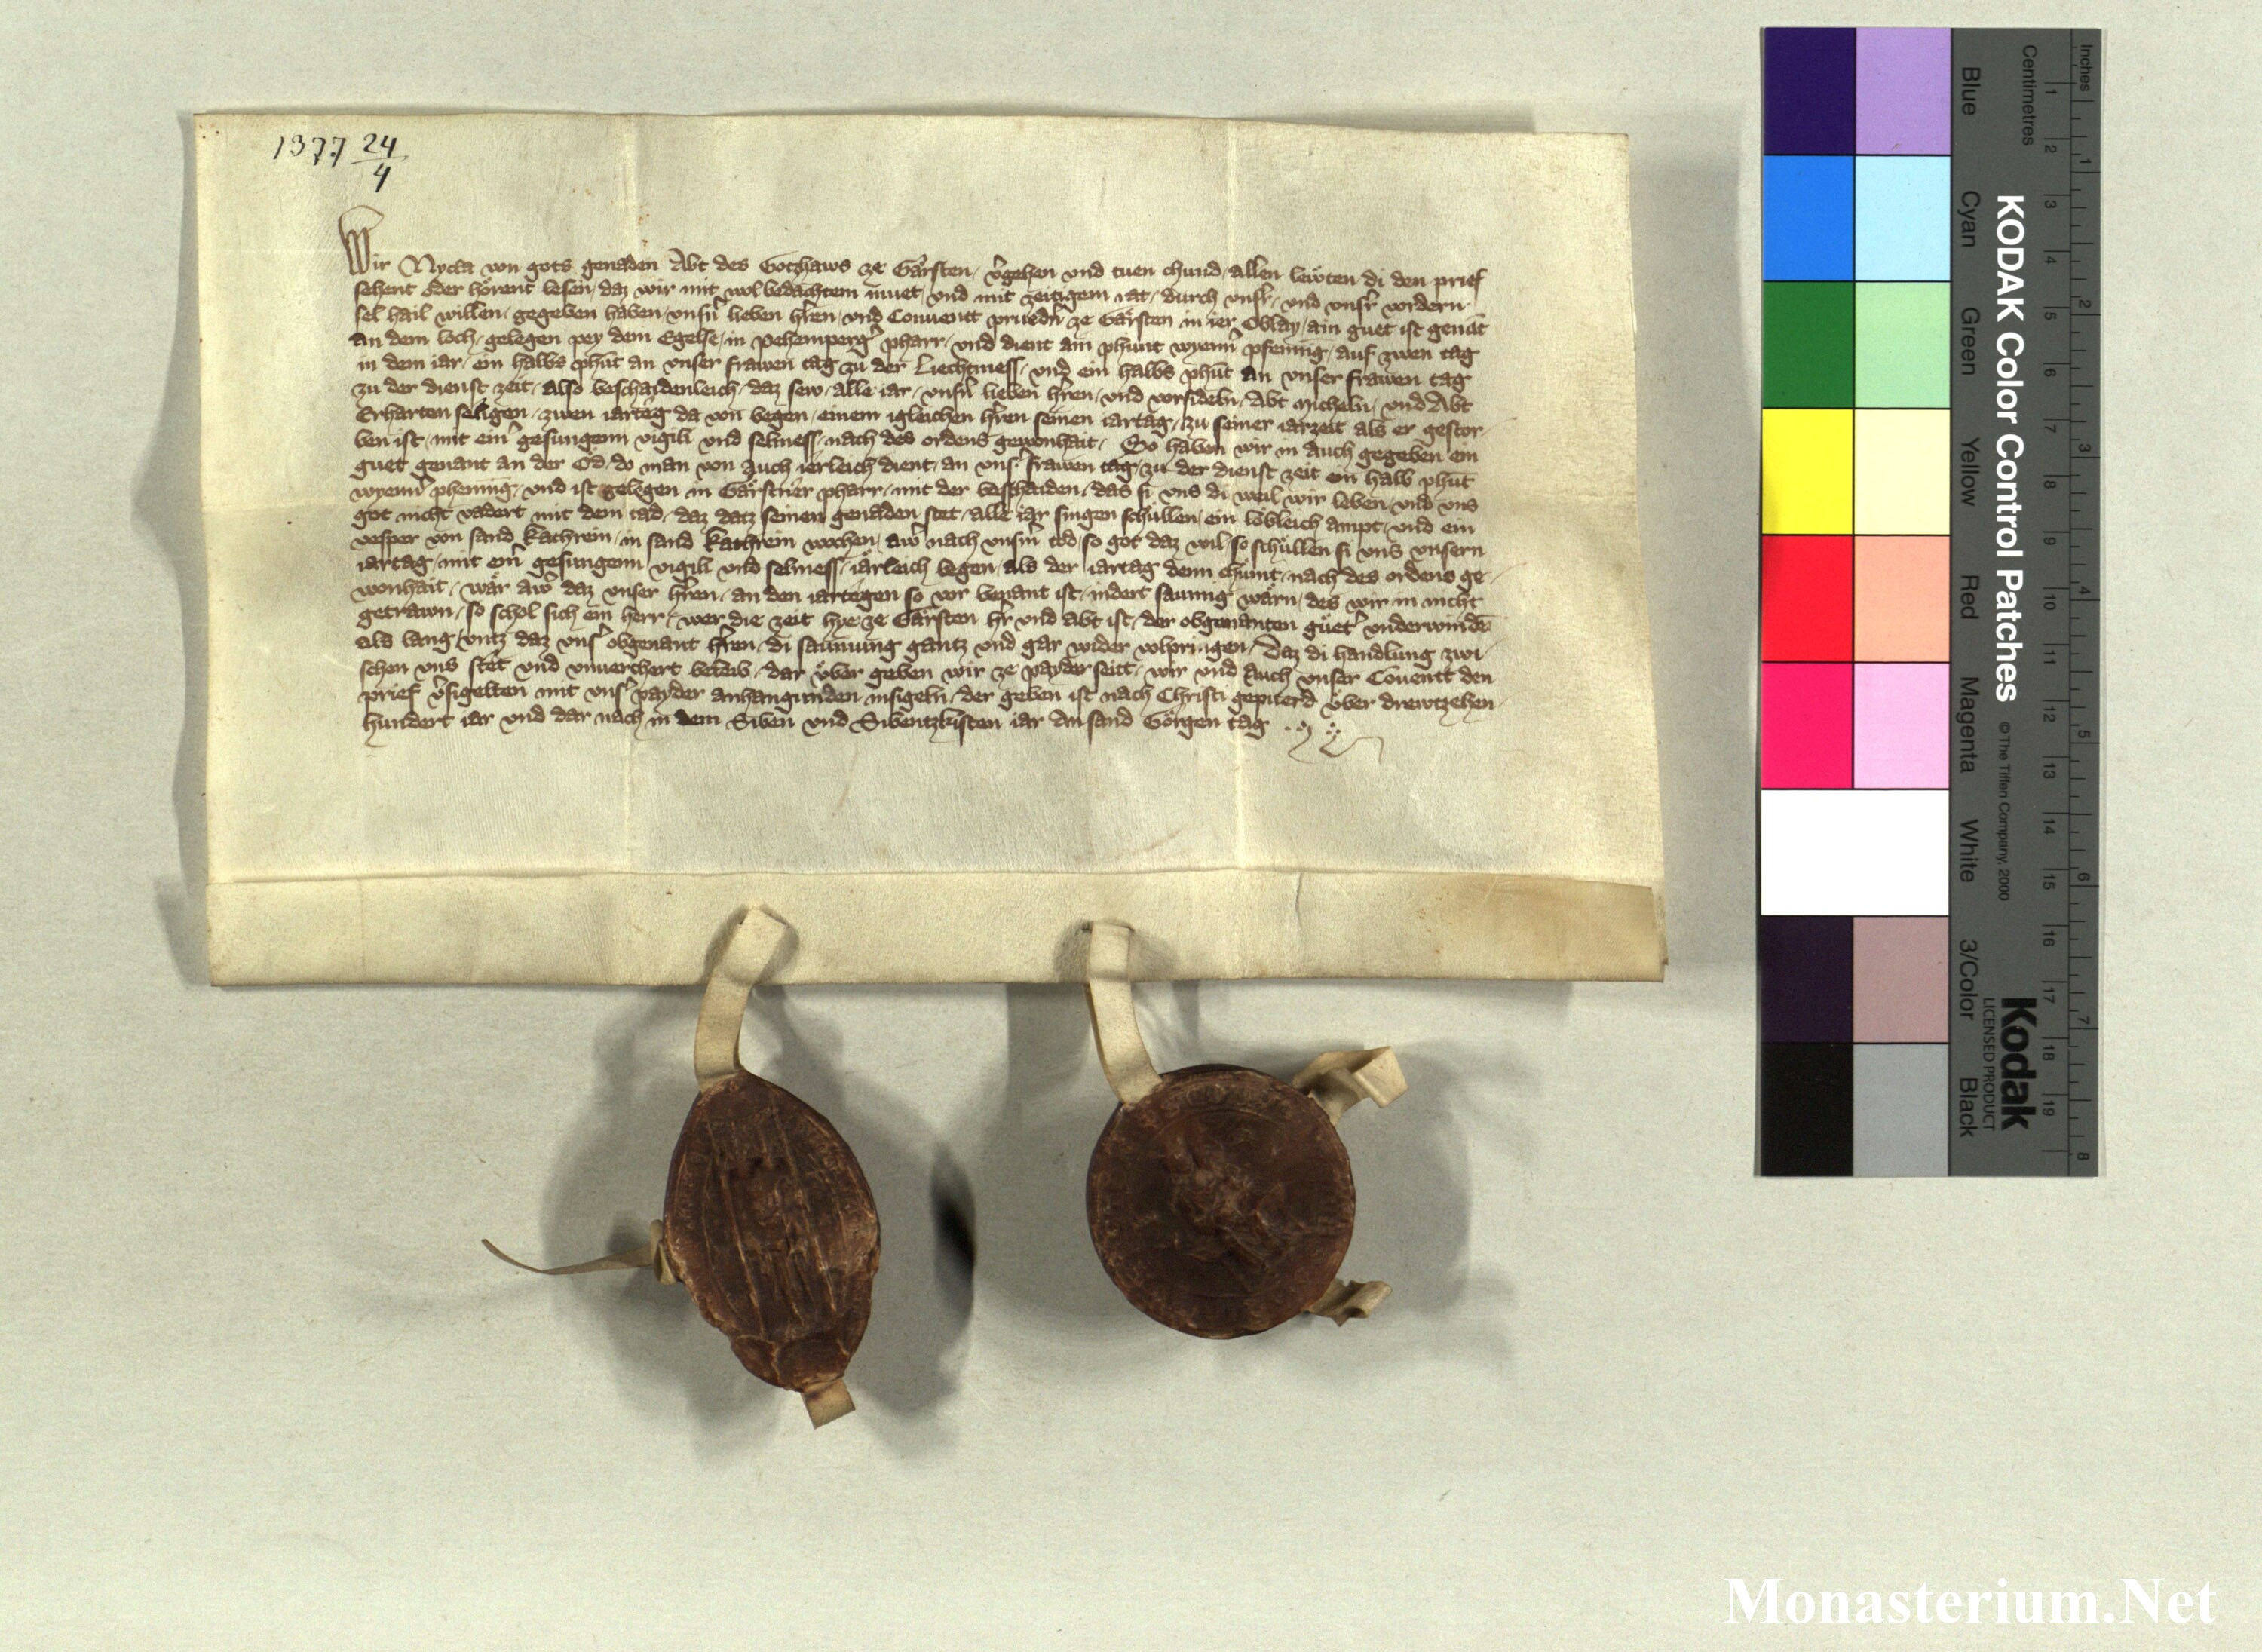 1377 24/4
Wir Nycla von gots genaden Abt des Gotzhaws ze Gärsten, v̾gehen vnd tuen chund, allen lewten di den prief
sehent oder hörent lesen, daz wir mit wol bedachtem muet, vnd mit zeitigem rat, durch vnsr̾, vnd vnsr̾ vordern
sel hail willen, gegeben haben, vnsn̾ lieben hr̾en, vnd Conuentt pruedn̾ ze Gärsten in ier Oblay, ain guet ist genāt
an dem loch, gelegen pey dem Egelse, in pehemperg̾ pharr, vnd dient ain phunt wyenn̾ pfening, auf zwen tag
in dem iar, ein halbs phūt an vnser frawen tag zu der Liechtmess, vnd ein halbs phūt an vnser frawen tag
zu der dienst zeit, also beschaydenleich, daz sew, alle iar, vnsn̾ lieben hr̾en, vnd vorsideln, Abt micheln, vnd Abt
Erharten seligen, zwen iartëg da von begen, einem igleichen hr̾en seinen iartag, zu seiner iarzeit als er gestor-
ben ist, mit ein̾ gesungenn vigili vnd selmess, nach des ordens gewonhait, So haben wir in auch gegeben ein
guet genant an der Öd, do man von auch ierleich dient, an vns̾ frawen tag, zu der dienst zeit ein halb phūt
wyenn̾ phening, vnd ist gelegen in Gärstner pharr, mit der beschaiden, das si vns di weil wir leben, vnd vns
got nicht vadert mit dem tad, daz datz seinen genaden stet, alle iar singen schullen, ein löbleich ampt, vnd ein
vesper von sand kathrein, in sand kathrein wochen, aw̾ nach vnsm̾ tod, so got daz wil, so schüllen si vns vnsern
iartag, mit ein̾ gesungenn vigili vnd selmess, iärleich begen, als der iartag denn chumt, nach des ordens ge-
wonhait, wär aw̾ daz vnser hr̾en, an den iartëgen so vor benant ist, indert saumig wärn, des wir in nicht
getrawn, so schol sich ein herr, wer die zeit hye ze Gärsten hr̾ vnd abt ist, der obgenanten güet̾ vnderwindē
als lang, vntz daz vns̾ obgenant hr̾en, di saumung gantz vnd gar wider volpringen, Daz di handlung zwi-
schen vns stet vnd vnuerchert beleib, dar über geben wir ze payder seitt, wir vnd auch vnser Couentt den
prief v̾sigelten mit vns̾ payder anhangunden insigeln, der geben ist nach Christi gepiterd über drewtzehen
hundert iar vnd dar nach in dem Siben vnd Sibentzkisten iar an sand Görgen tag
KODAK Color Control Patches
© The Tiffen Company, 2000
Kodak
LICENSED PRODUCT
Blue Cyan Green Yellow Red Magenta White 3/Color Black
Inches
1 2 3 4 5 6 7 8
Centimetres
1 2 3 4 5 6 7 8 9 10 11 12 13 14 15 16 17 18 19
Monasterium.Net